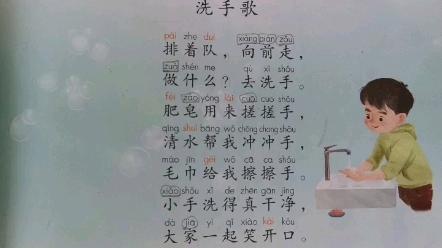 洗手歌
pái zhe duì xiàng qián zǒu
排着队，向前走，
zuò shén me qù xǐ shǒu
做什么？去洗手。
féi zào yòng lái cuō cuo shǒu
肥皂用来搓搓手，
qīng shuǐ bāng wǒ chōng chong shǒu
清水帮我冲冲手，
máo jīn gěi wǒ cā ca shǒu
毛巾给我擦擦手。
xiǎo shǒu xǐ de zhēn gān jìng
小手洗得真干净，
dà jiā yì qǐ xiào kāi kǒu
大家一起笑开口。